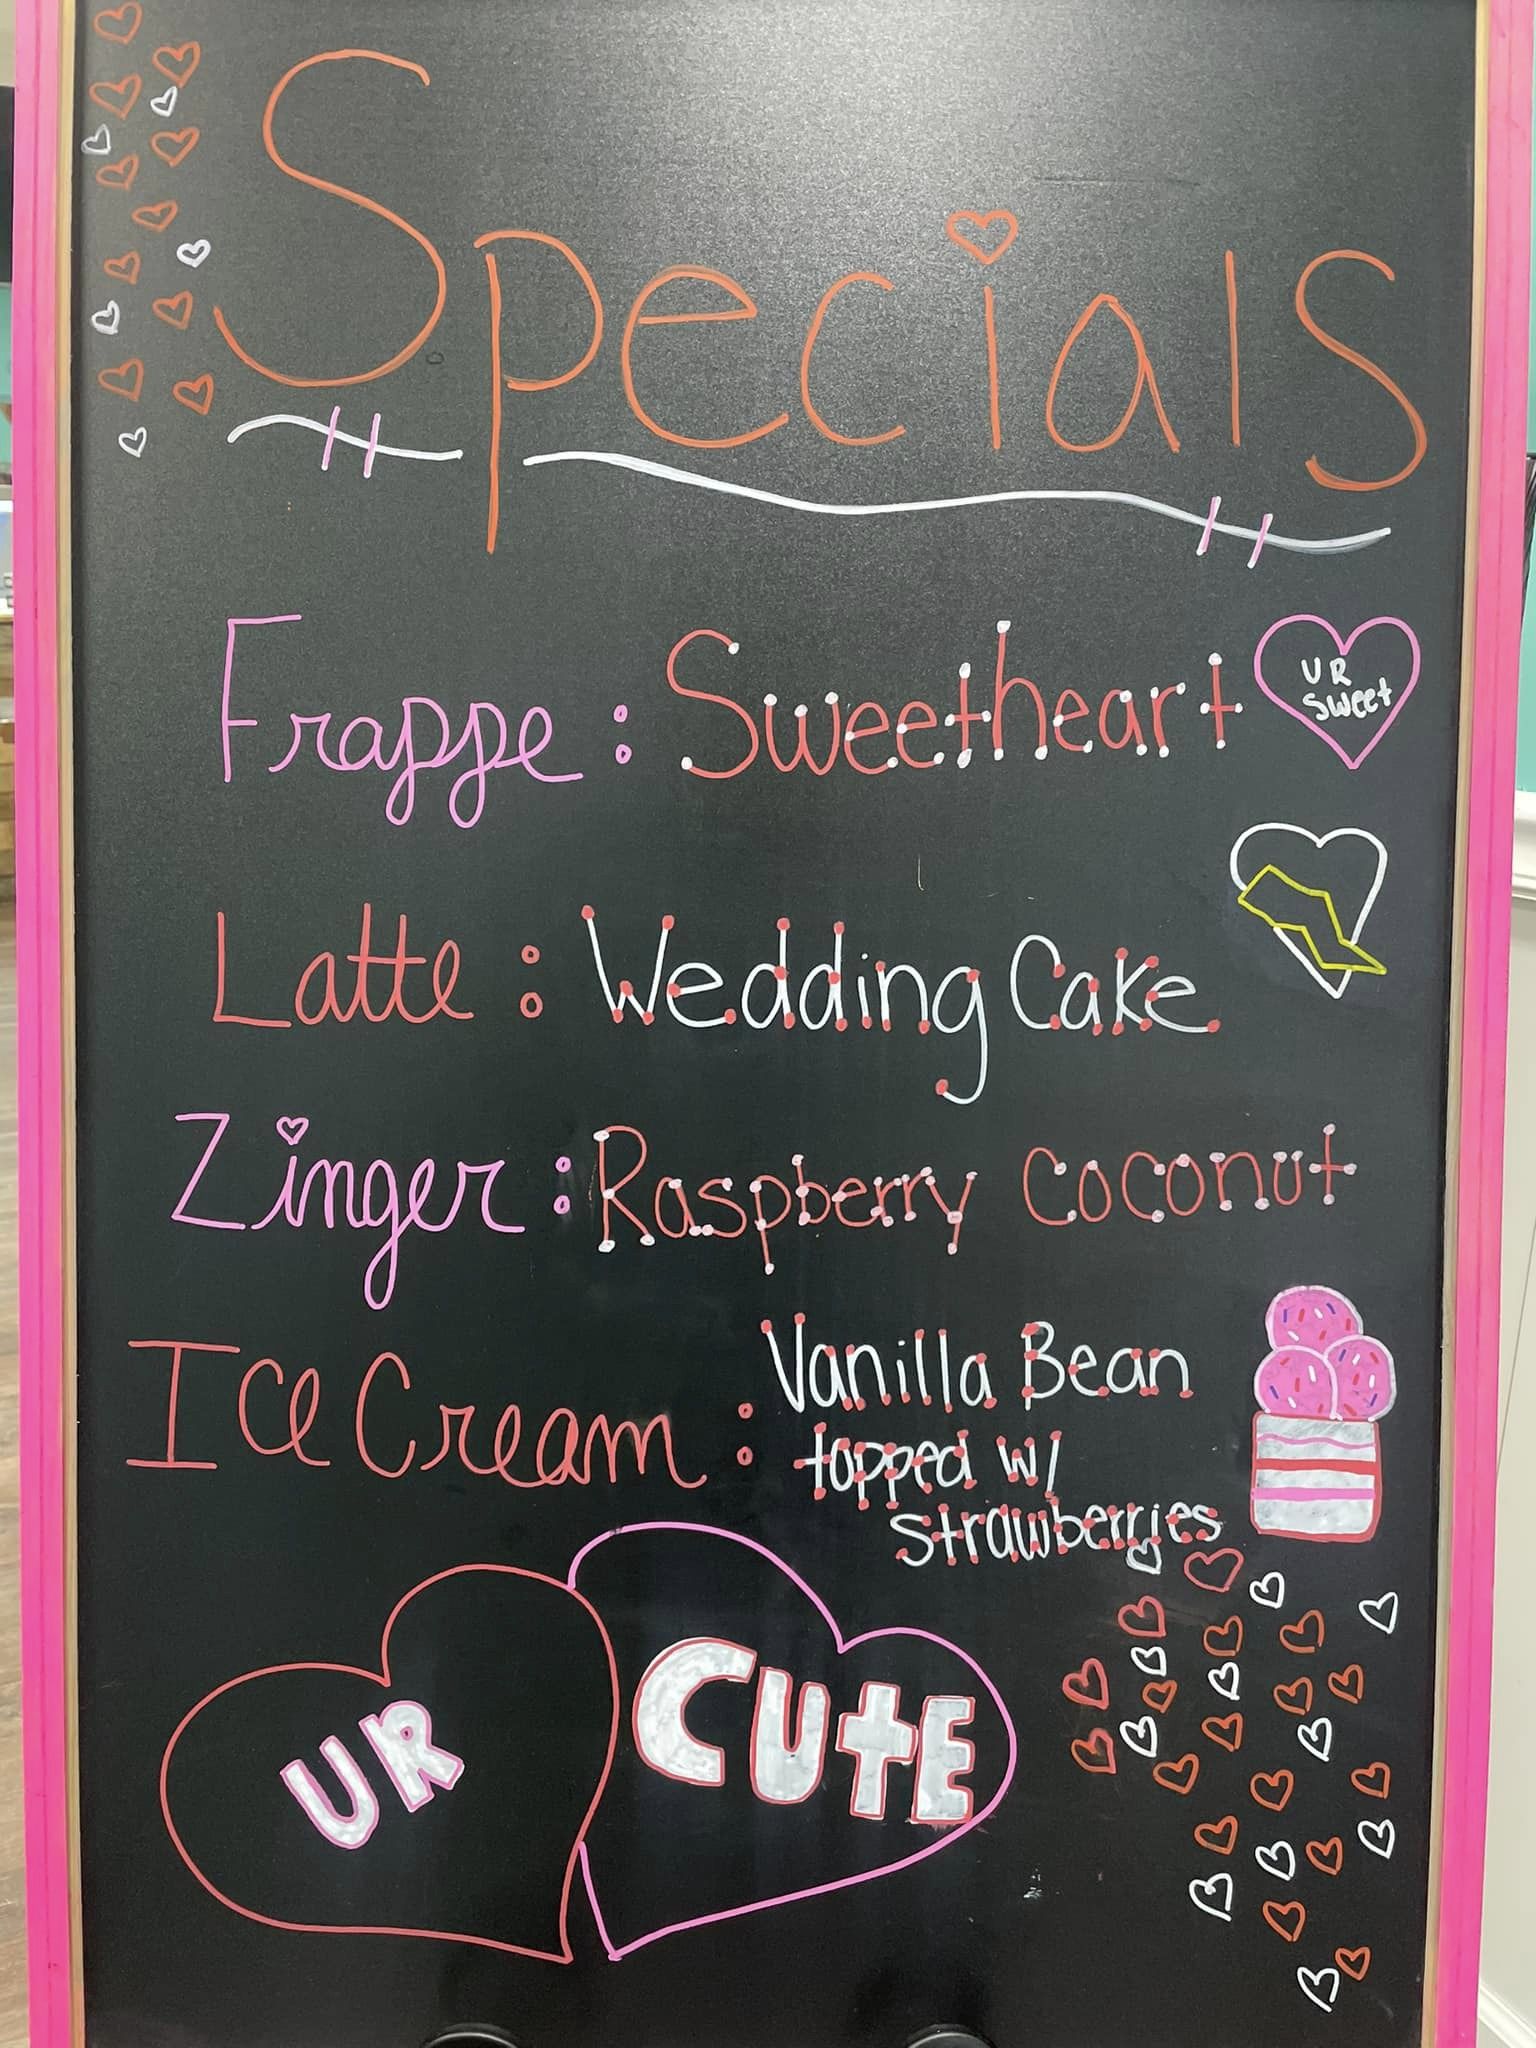 Specials
Frappe: Sweetheart
UR
Sweet
Latte: Wedding Cake
Zinger: Raspberry Coconut
Ice Cream: Vanilla Bean
topped w/
strawberries
UR
CUtE